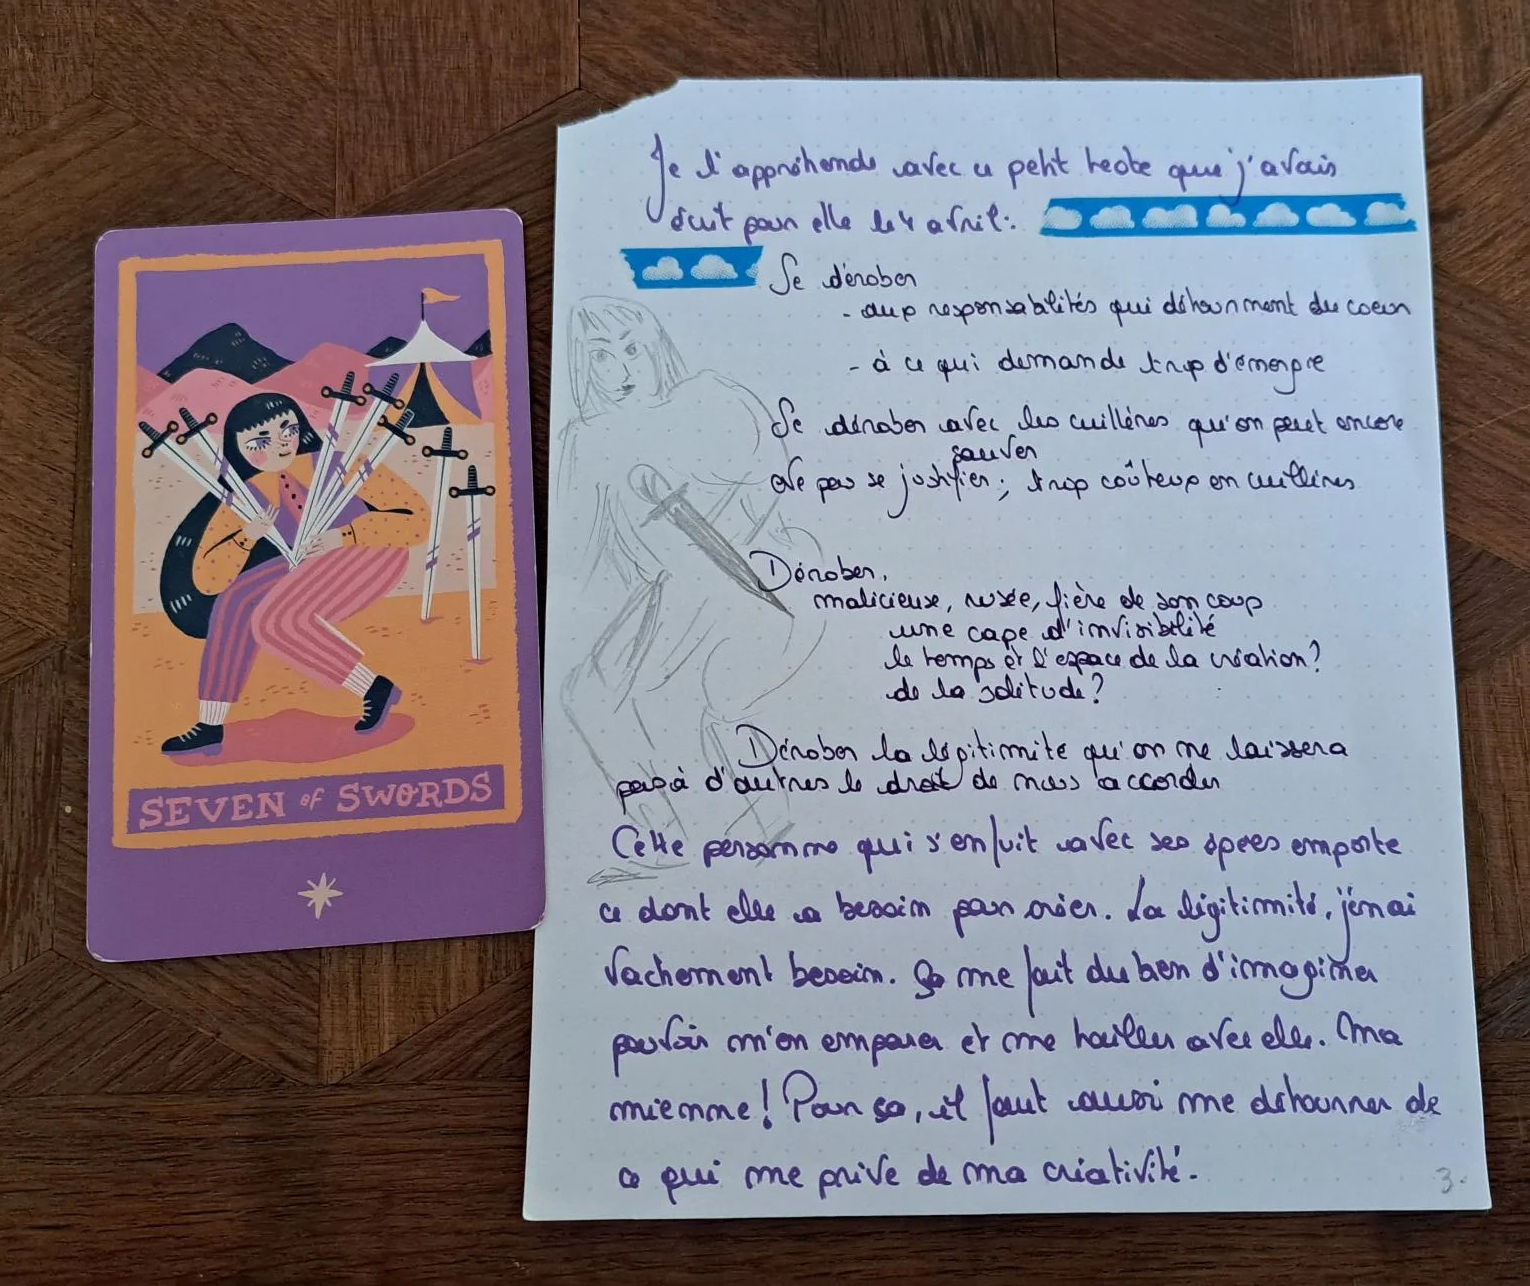 SEVEN of SWORDS
Je l'appréhende avec ce petit texte que j'avais
écrit pour elle le 4 avril :
Se dérober
- aux responsabilités qui détournent du coeur
- à ce qui demande trop d'énergie
Se dérober avec les cuillères qu'on peut encore
sauver
Ne pas se justifier ; trop coûteux en cuillères
Dérober,
malicieuse, rusée, fière de son coup
une cape d'invisibilité
le temps et l'espace de la création ?
de la solitude ?
Dérober la légitimité qu'on ne laissera
pas à d'autres le droit de nous accorder
Cette personne qui s'enfuit avec ses épées emporte
ce dont elle a besoin pour créer. La légitimité, j'en ai
vachement besoin. Ça me fait du bien d'imaginer
pouvoir m'en emparer et me tailler avec elle. Ma
mienne ! Pour ça, il faut aussi me détourner de
ce qui me prive de ma créativité.
3.